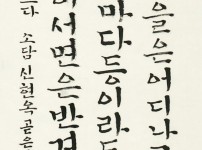 을은어디나
마다등이라
서면은반겨
다 소담 신현옥 곧은